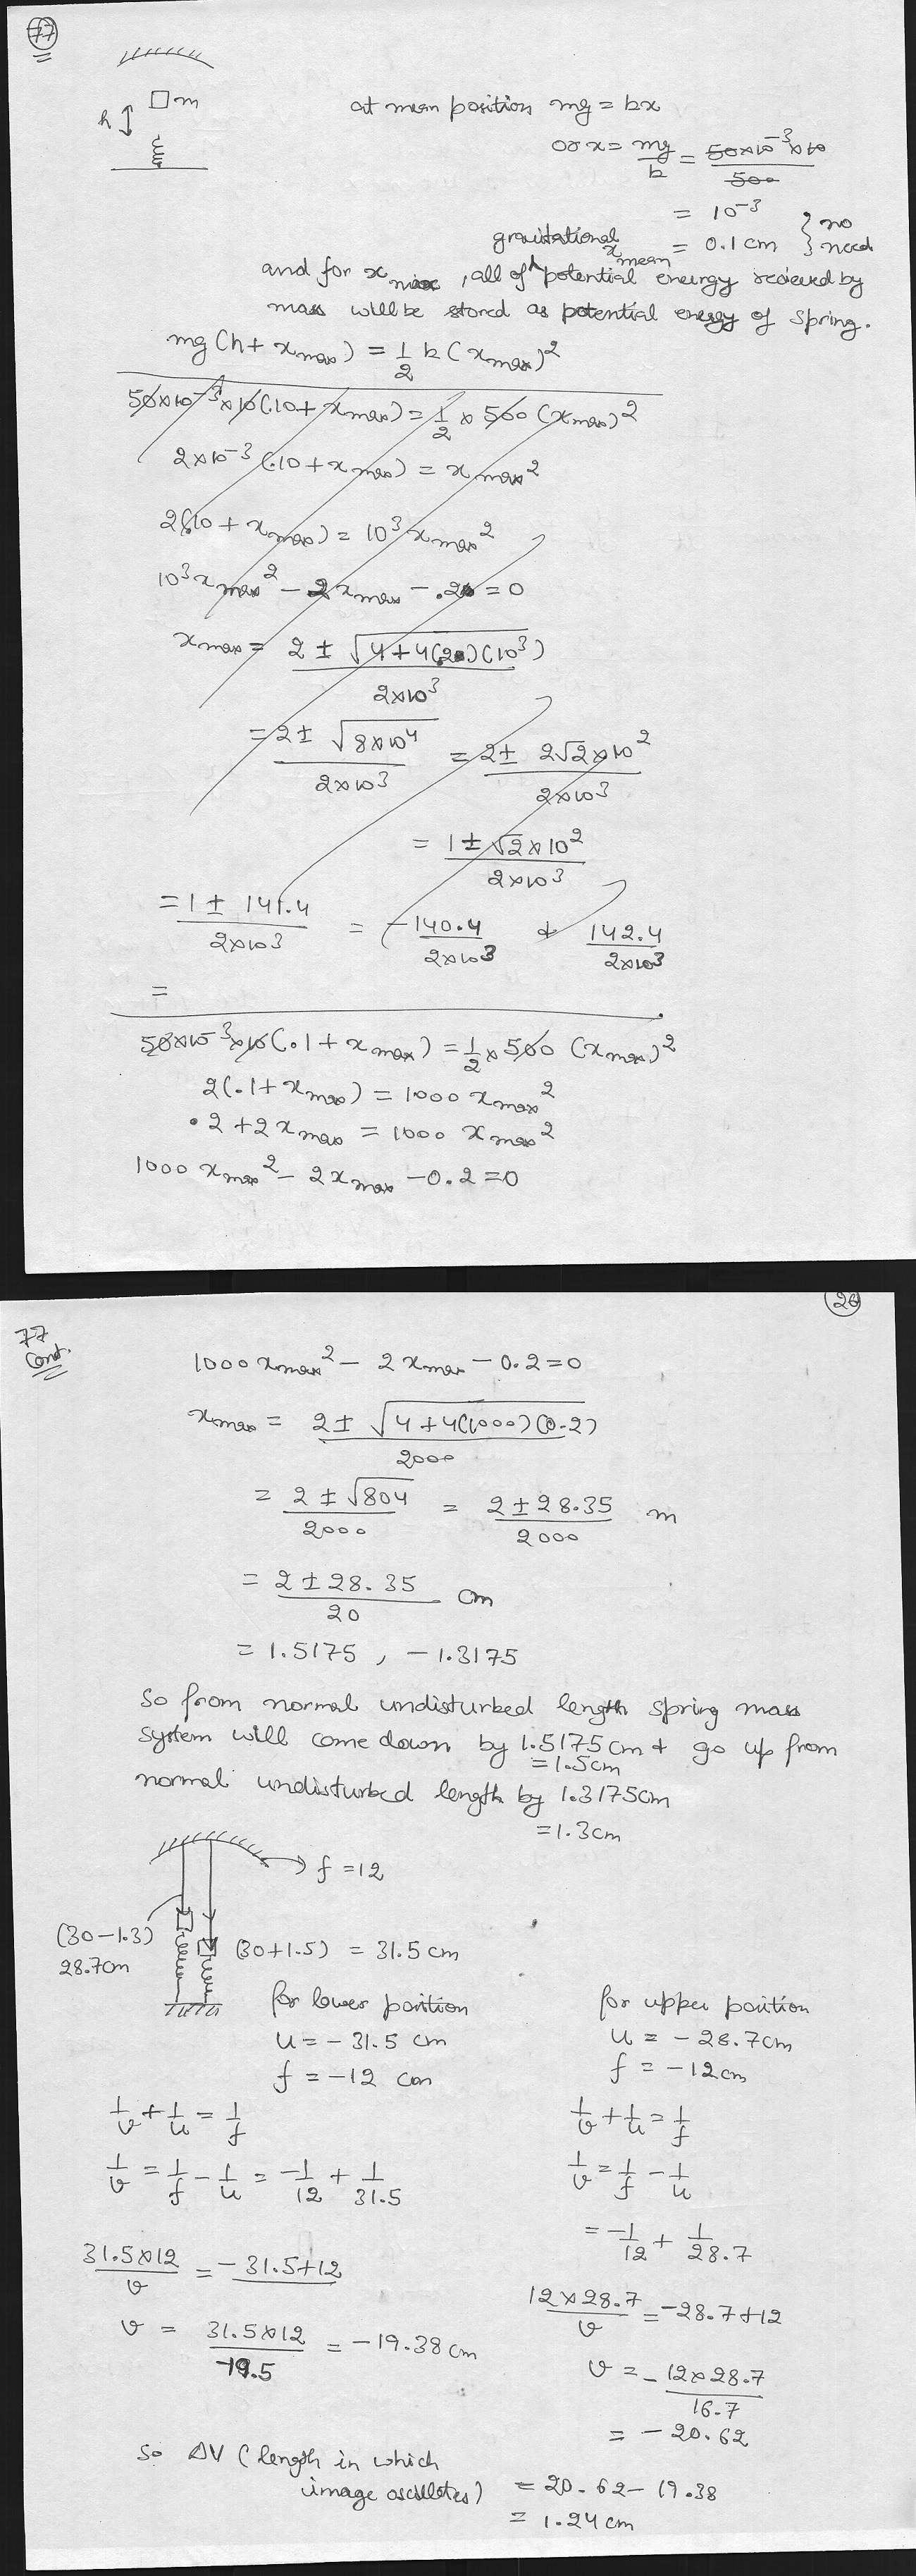 77
m
h
at mean position mg = kx
or x = mg/k = 50x10⁻³x10/500
= 10⁻³
x mean = 0.1 cm } no need
and for x max, all of gravitational potential energy recieved by
mass will be stored as potential energy of spring.
mg(h + x max) = 1/2 k (x max)²
50x10⁻³x10(.10 + x max) = 1/2 x 500 (x max)²
2x10⁻³ (.10 + x max) = x max²
2(.10 + x max) = 10³ x max²
10³ x max² - 2 x max - .20 = 0
x max = 2 ± √(4 + 4(20)(10³)) / 2x10³
= 2 ± √(8x10⁴) / 2x10³ = 2 ± 2√2 x 10² / 2x10³
= 1 ± √2 x 10² / 2x10³
= 1 ± 141.4 / 2x10³ = -140.4 / 2x10³ & 142.4 / 2x10³
=
50x10⁻³x10(.1 + x max) = 1/2 x 500 (x max)²
2(.1 + x max) = 1000 x max²
.2 + 2 x max = 1000 x max²
1000 x max² - 2 x max - 0.2 = 0
26
77
Cont.
1000 x max² - 2 x max - 0.2 = 0
x max = 2 ± √(4 + 4(1000)(0.2)) / 2000
= 2 ± √804 / 2000 = 2 ± 28.35 / 2000 m
= 2 ± 28.35 / 20 cm
= 1.5175, -1.3175
So from normal undisturbed length spring mass
system will come down by 1.5175cm & go up from
= 1.5cm
normal undisturbed length by 1.3175cm
= 1.3cm
f = 12
(30-1.3)
28.7cm
(30+1.5) = 31.5 cm
for lower position
u = -31.5 cm
f = -12 cm
1/v + 1/u = 1/f
1/v = 1/f - 1/u = -1/12 + 1/31.5
31.5x12/v = -31.5+12
v = 31.5x12 / -19.5 = -19.38cm
for upper position
u = -28.7cm
f = -12cm
1/v + 1/u = 1/f
1/v = 1/f - 1/u
= -1/12 + 1/28.7
12x28.7/v = -28.7+12
v = -12x28.7/16.7
= -20.62
So ΔV (length in which
image oscillates) = 20.62 - 19.38
= 1.24 cm